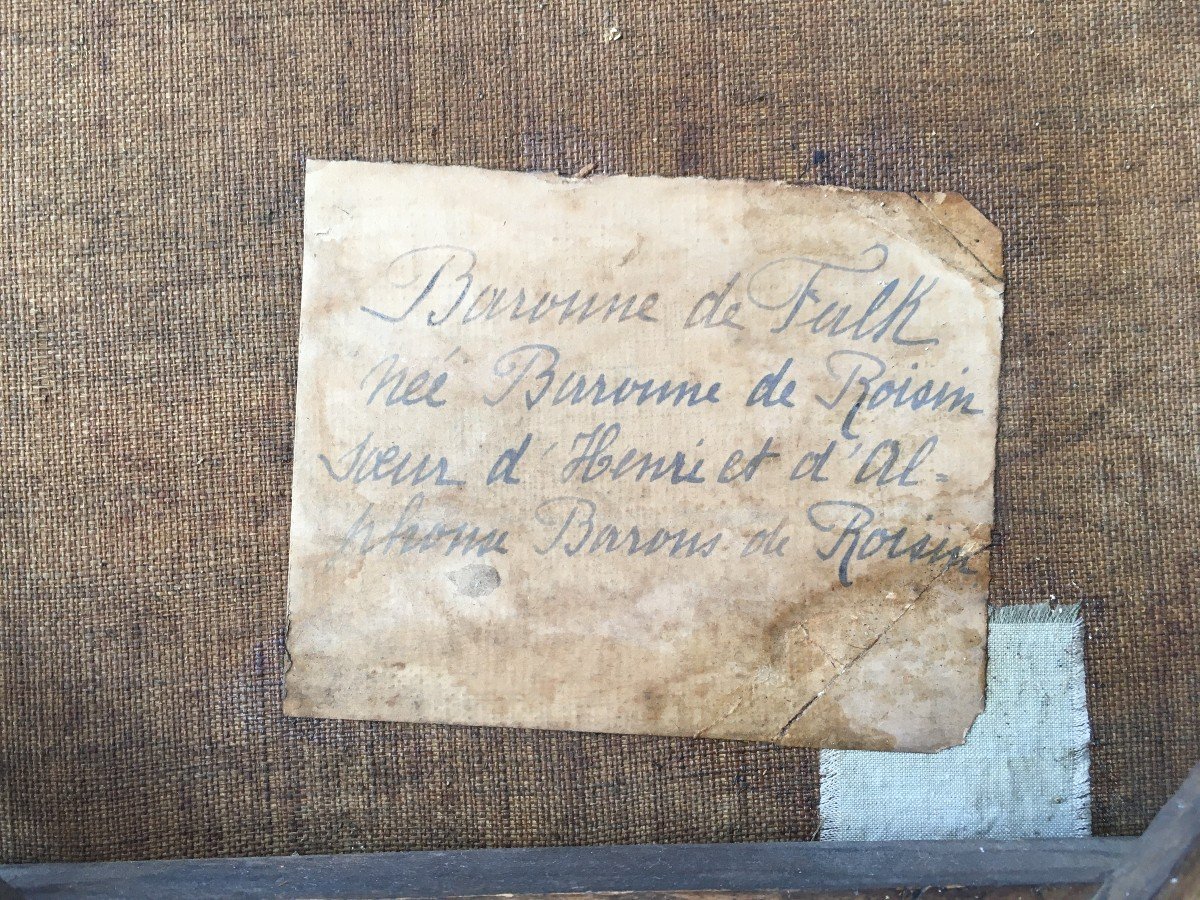 Baronne de Falk
née Baronne de Roisin
sœur d'Henri et d'Al=
phonse Barons de Roisin